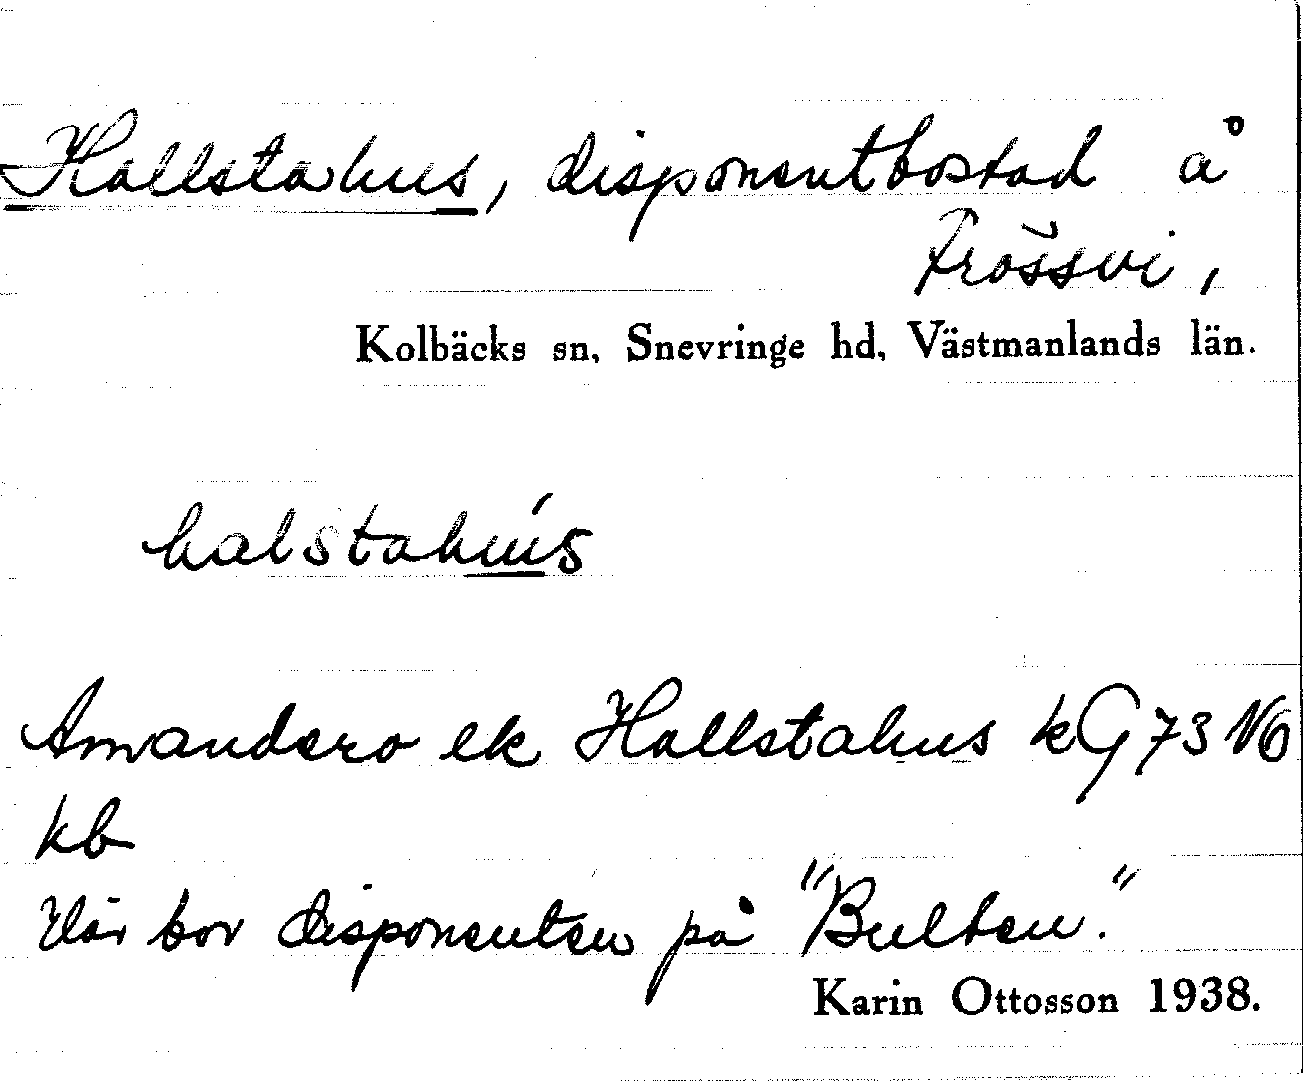 Hallstahus, disponentbostad å
Frössvi,
Kolbäcks sn, Snevringe hd, Västmanlands län.
halstahús
Amandero ek Hallstahus kG 73 N6
kb
Här bor disponenten på "Bulten".
Karin Ottosson 1938.